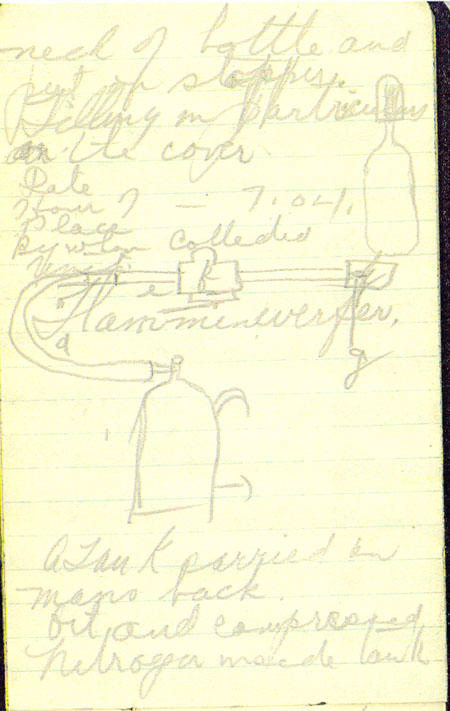 neck of bottle and
put on stopper.
Filling in particulars
on the cover
Date
Hour of —
Place
By whom collected
e k
Flammenwerfer.
a
g
A Tank carried on
mans back.
Oil and compressed
Nitrogen inside tank